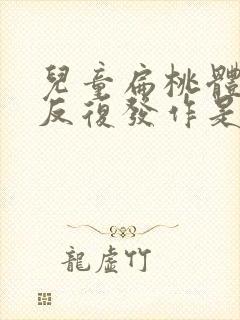 兒童扁桃體
反復發作是
龍虛竹